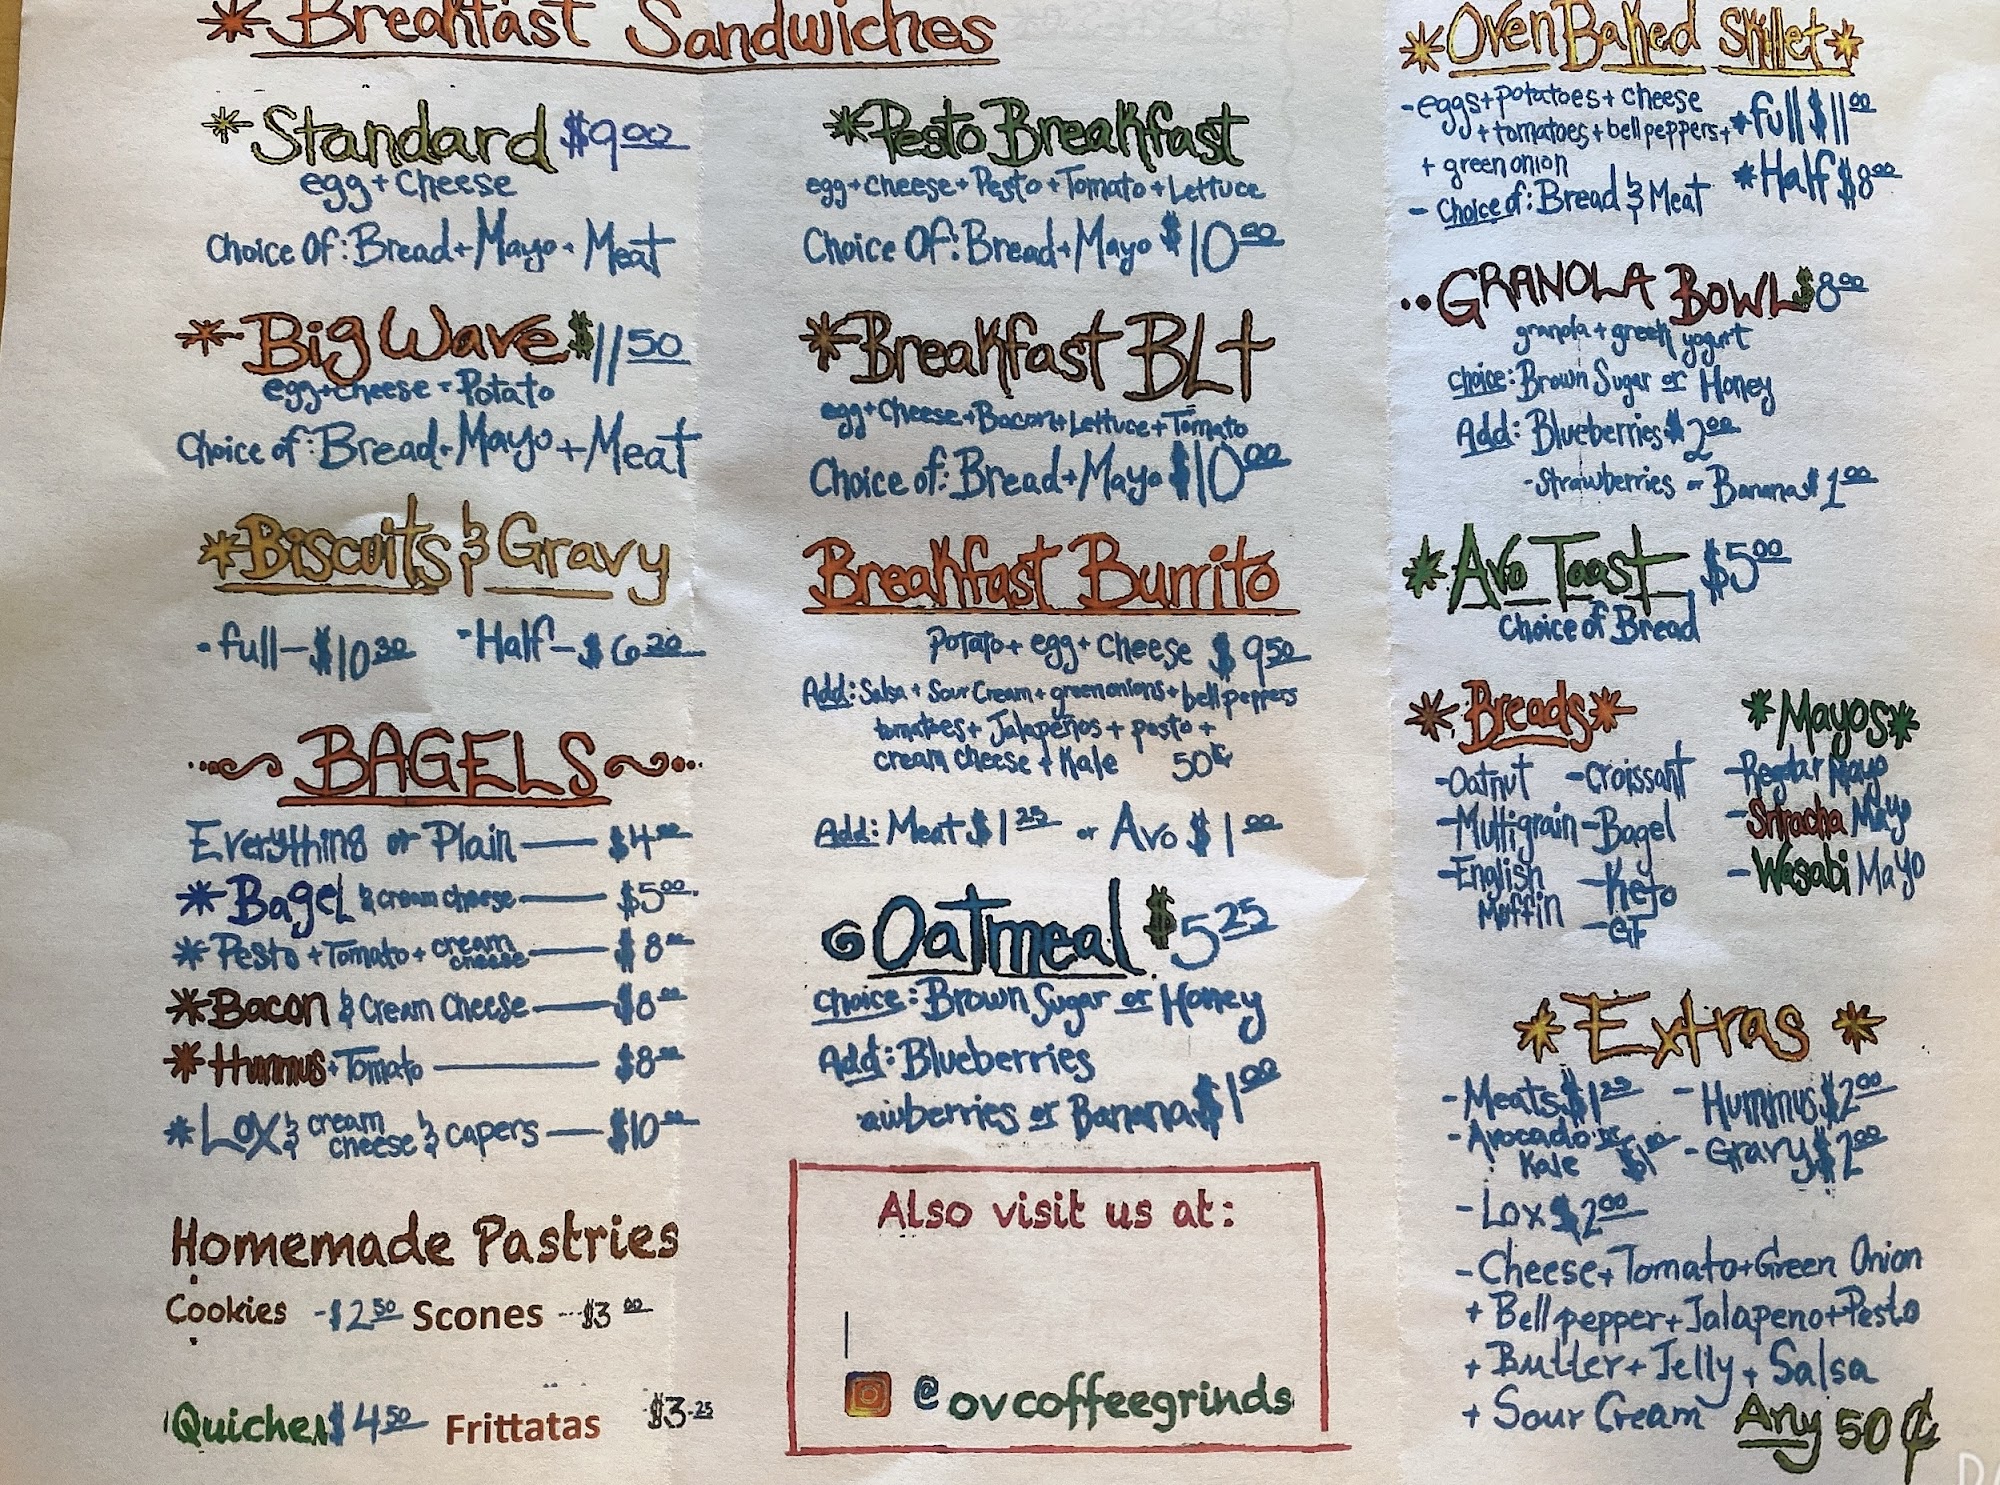 *Breakfast Sandwiches
*Standard $9.00
egg + cheese
Choice Of: Bread + Mayo + Meat
*Big Wave $11.50
egg + cheese + Potato
Choice of: Bread + Mayo + Meat
*Biscuits & Gravy
- full - $10.30 - Half - $6.20
BAGELS
Everything or Plain — $4.00
*Bagel & cream cheese — $5.00
*Pesto + Tomato + cream cheese — $8.00
*Bacon & Cream Cheese — $8.00
*Hummus + Tomato — $8.00
*Lox & cream cheese & capers — $10.00
Homemade Pastries
Cookies - $2.50 Scones --- $3.00
Quiches $4.50 Frittatas $3.25
*Pesto Breakfast
egg + cheese + Pesto + Tomato + Lettuce
Choice Of: Bread + Mayo $10.00
*Breakfast BLt
egg + cheese + Bacon + Lettuce + Tomato
Choice of: Bread + Mayo $10.00
Breakfast Burrito
Potato + egg + cheese $9.50
Add: Salsa + Sour Cream + green onions + bell peppers
tomatoes + Jalapeños + pesto +
cream cheese + Kale 50¢
Add: Meat $1.25 or Avo $1.00
Oatmeal $5.25
choice: Brown Sugar or Honey
Add: Blueberries
awberries or Banana $1.00
Also visit us at:
@ovcoffeegrinds
*Oven Baked Skillet*
- eggs + potatoes + cheese *full $11.00
+ tomatoes + bell peppers +
+ green onion *Half $8.00
- Choice of: Bread & Meat
GRANOLA BOWL $8.00
granola + greek yogurt
choice: Brown Sugar or Honey
Add: Blueberries $2.00
- Strawberries or Banana $1.00
*Avo Toast $5.00
Choice of Bread
*Breads*
- Oatnut - Croissant
- Multigrain - Bagel
- English Muffin - Keto
- GF
*Mayos*
- Regular Mayo
- Sriracha Mayo
- Wasabi Mayo
*Extras*
- Meats $1.25 - Hummus $2.00
- Avocado or Kale $1.00 - Gravy $2.00
- Lox $2.00
- Cheese + Tomato + Green Onion
+ Bell pepper + Jalapeno + Pesto
+ Butter + Jelly + Salsa
+ Sour Cream Any 50¢